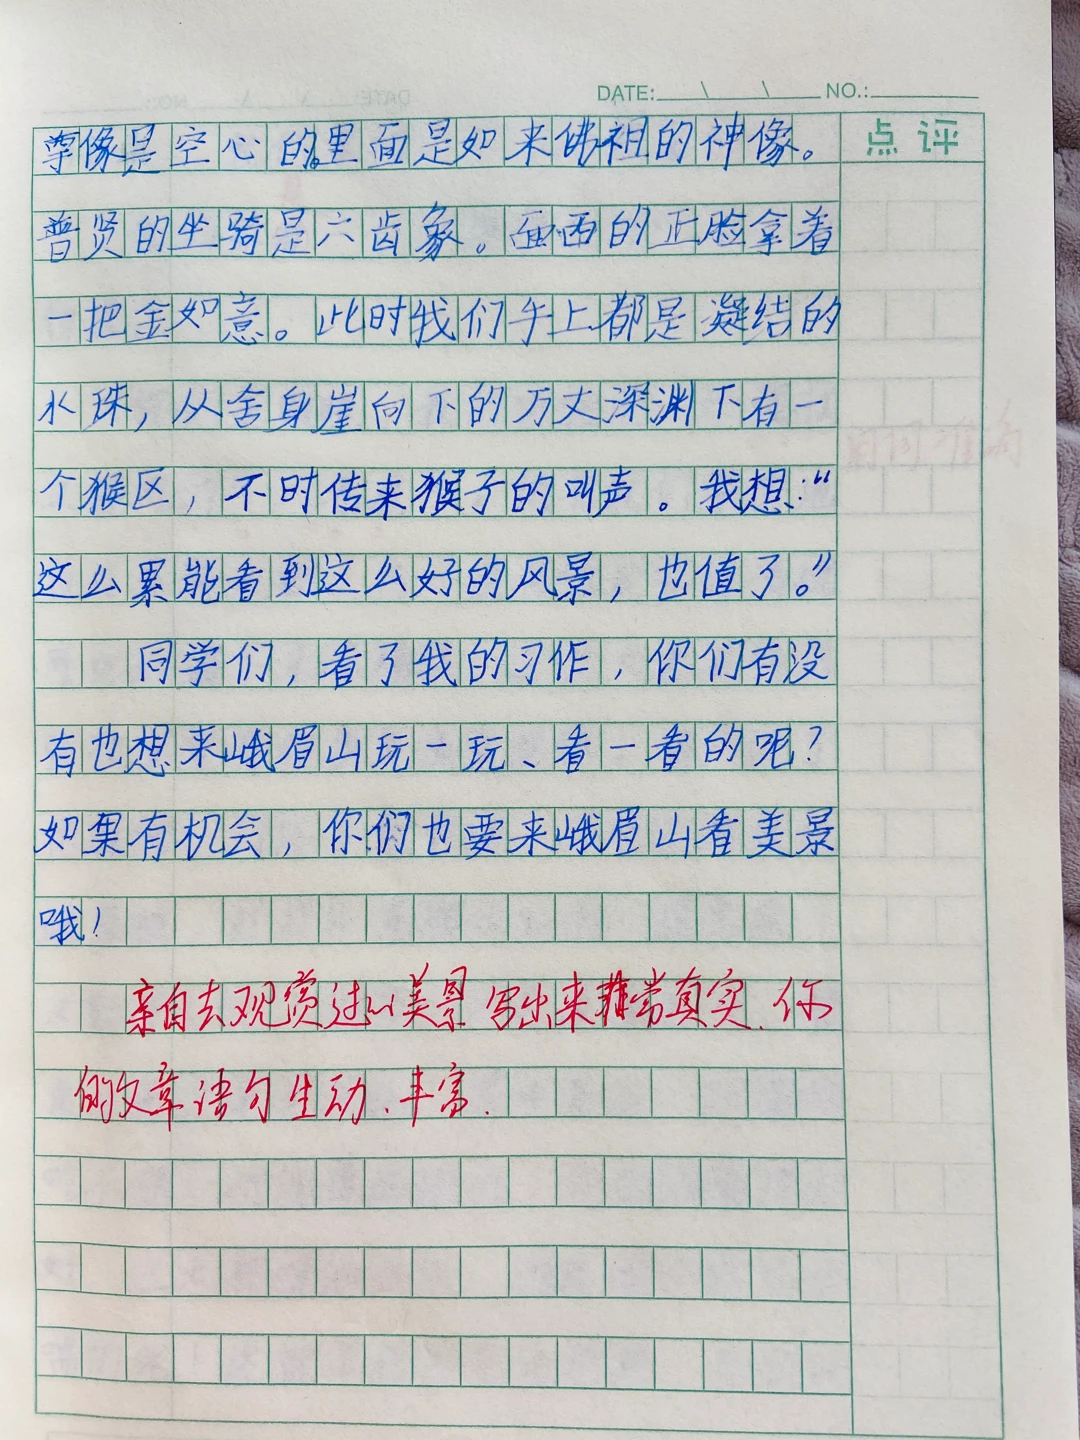 DATE: \ \ NO.:
点评
尊像是空心的。里面是如来佛祖的神像。
普贤的坐骑是六齿象。面西的正脸拿着
一把金如意。此时我们手上都是凝结的
水珠，从舍身崖向下的万丈深渊下有一
个猴区，不时传来猴子的叫声。我想：“
这么累能看到这么好的风景，也值了。”
同学们，看了我的习作，你们有没
有也想来峨眉山玩一玩、看一看的呢？
如果有机会，你们也要来峨眉山看美景
哦！
亲自去观赏过的美景写出来非常真实.你
的文章语句生动、丰富.